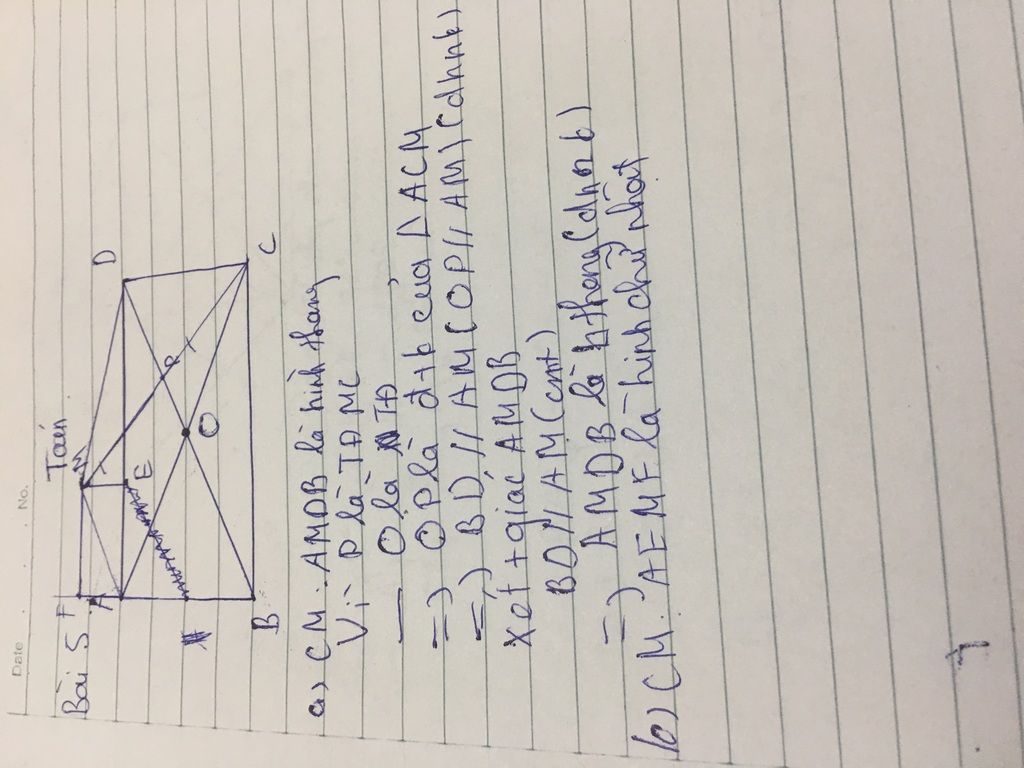 Date
No.
Bài 5
Toán
F
M
D
A
E
P
O
B
C
a) CM. AMDB là hình thang
Vì P là TĐ MC
— O là TĐ
=) OP là đtb của Δ ACM
=) BD // AM (OP // AM) (dhnb)
Xét tgiác AMDB
BD // AM (cmt)
=) AMDB là hthang (dhnb)
b) CM. AEMF là hình chữ nhật